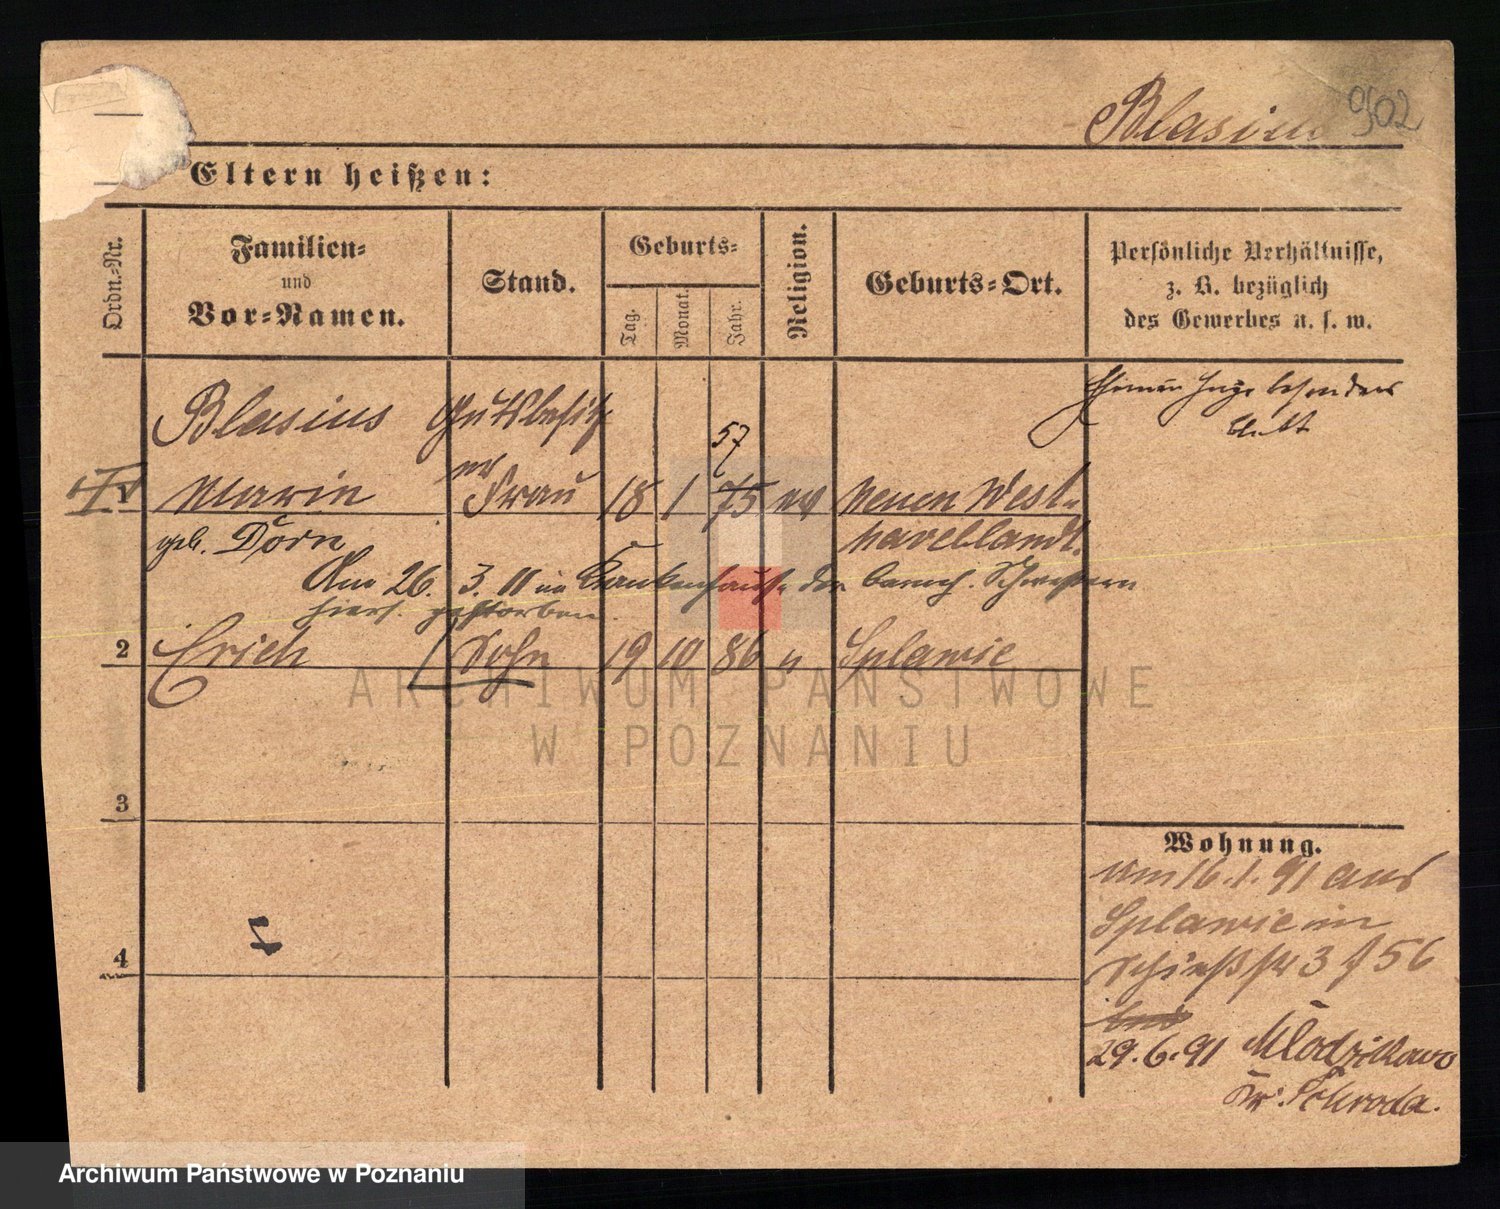 Blasius 902
Eltern heißen:
Ordn.-Nr.
Familien-
und
Vor-Namen.
Stand.
Geburts-
Tag.
Monat.
Jahr.
Religion.
Geburts-Ort.
Persönliche Verhältnisse,
z. B. bezüglich
des Gewerbes u. s. w.
besonders
Blasius Gutsbesitz
57
1 Marie Frau 18 1 75 ev Nenen West-
geb. Dorn havellandt.
Am 26. 3. 11 im Krankenhause der barmh. Schwestern
hiers. gestorben.
2 Erich Sohn 19 10 86 " Splawie
ARCHIWUM PAŃSTWOWE
W POZNANIU
3
4
Wohnung.
am 16.1.91 aus
Splawie in
Schießstr 3 56
29.6.91 Mlodzikowo
Kr. Schroda.
Archiwum Państwowe w Poznaniu